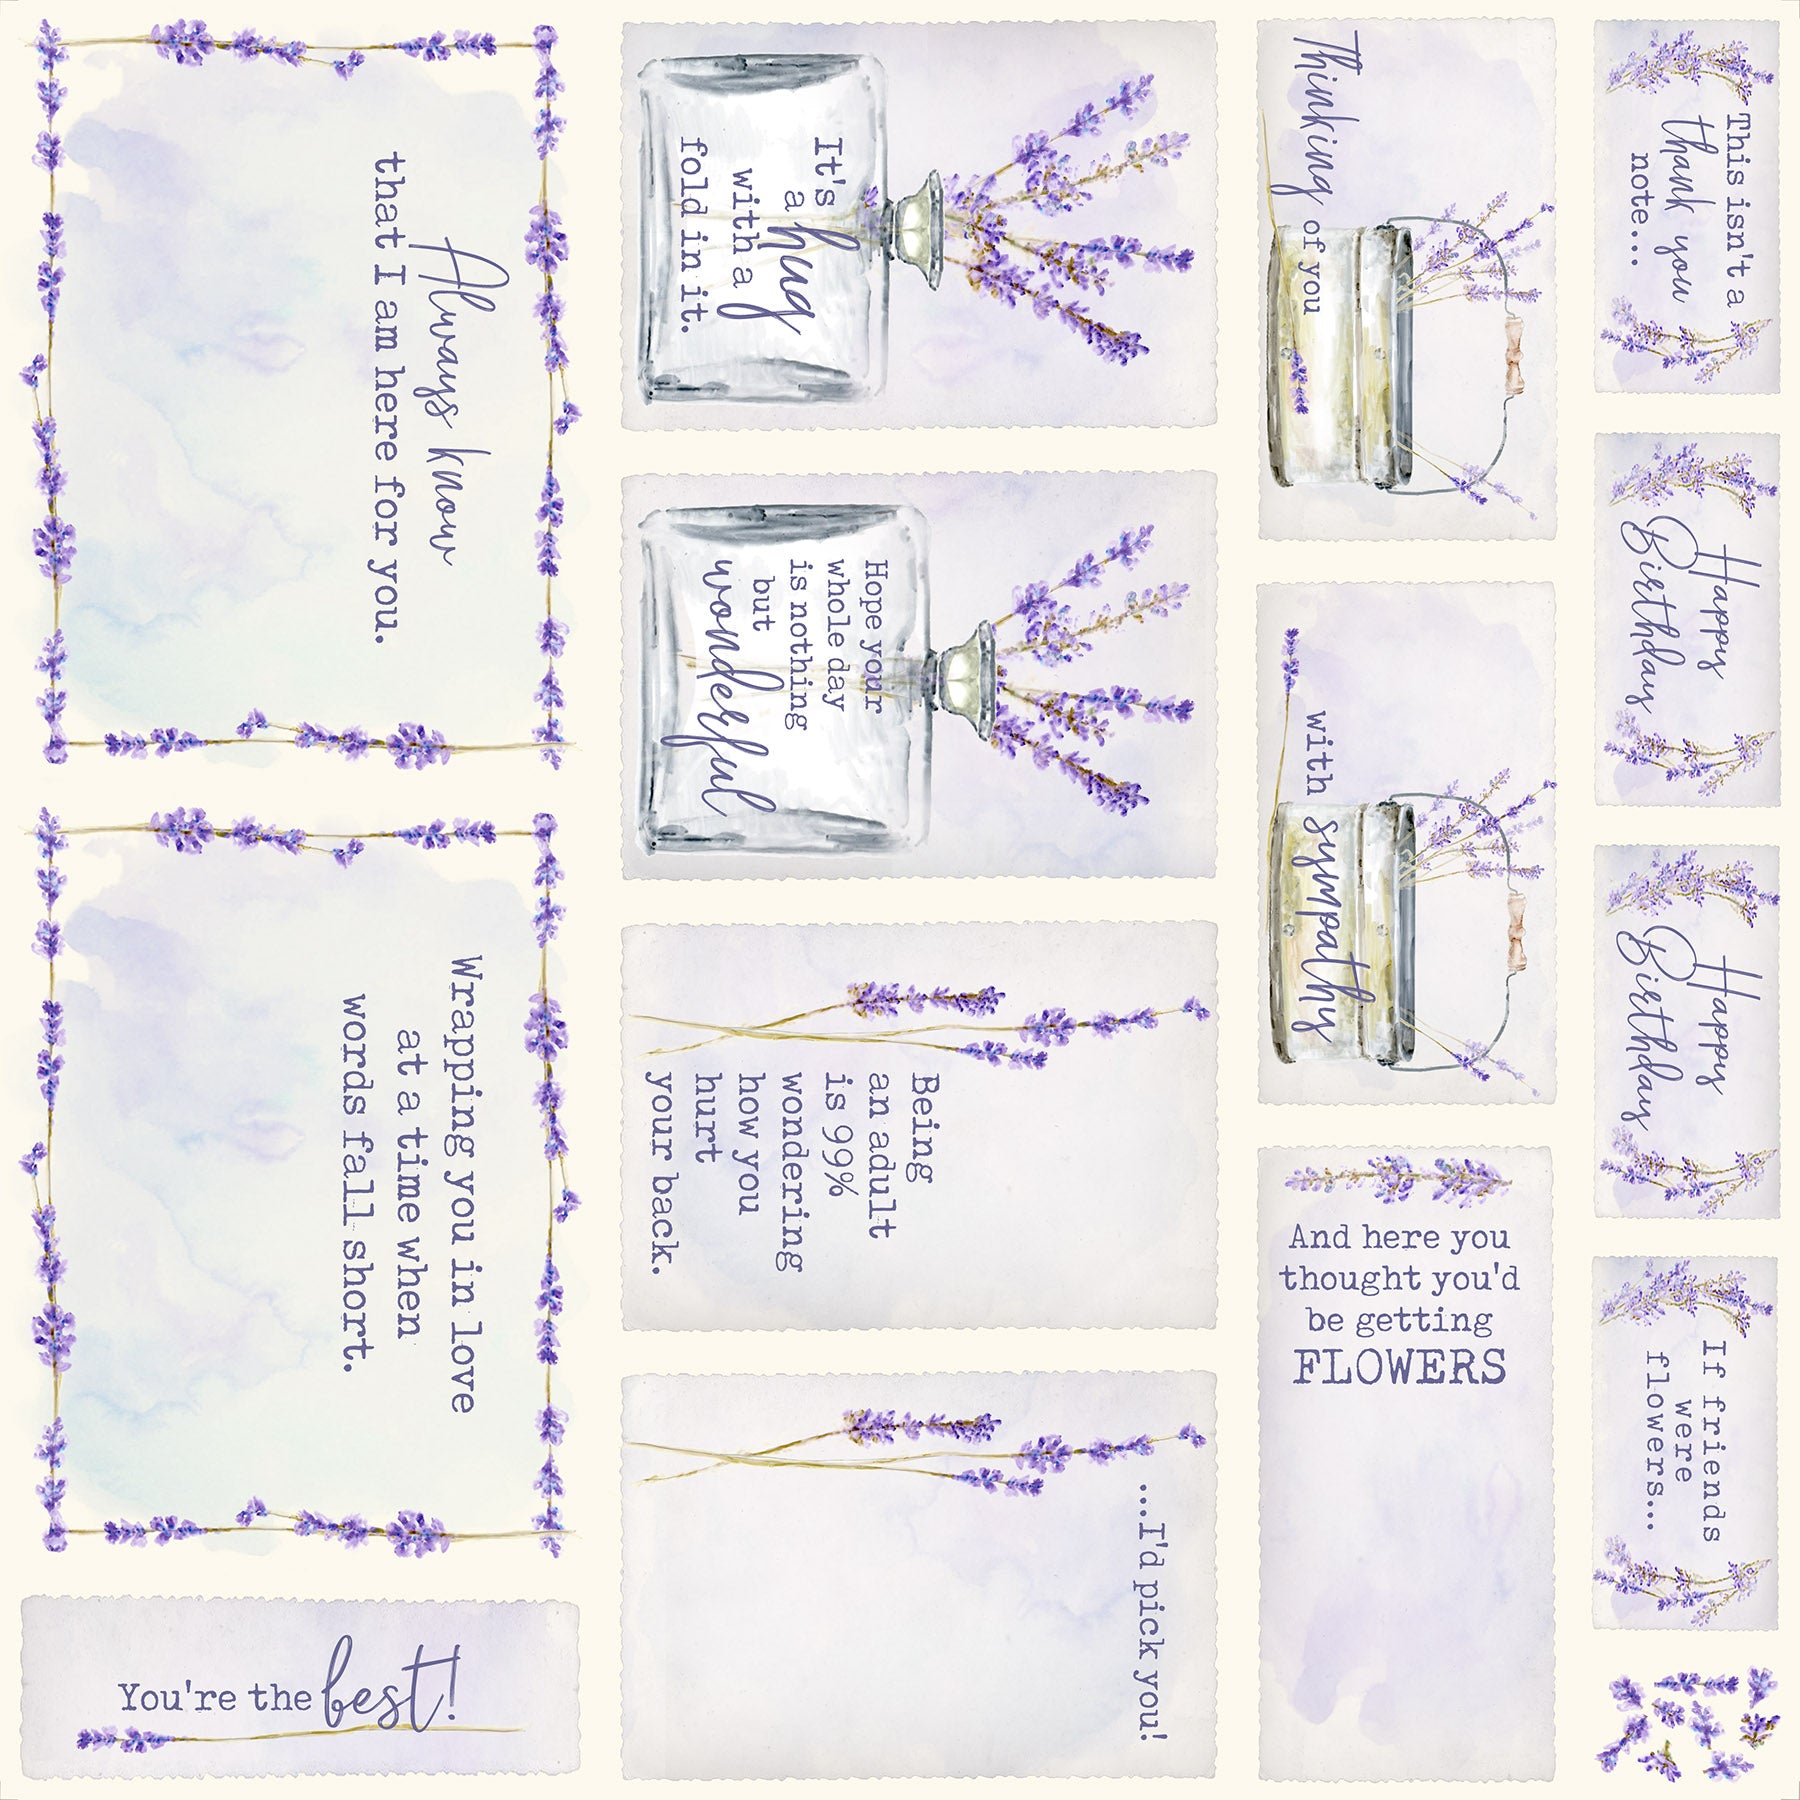 Always know
that I am here for you.
Wrapping you in love
at a time when
words fall short.
You're the best!
It's
a hug
with a
fold in it.
Hope your
whole day
is nothing
but
wonderful
Being
an adult
is 99%
wondering
how you
hurt
your back.
...I'd pick you!
Thinking of you
with sympathy
And here you
thought you'd
be getting
FLOWERS
This isn't a
thank you
note...
Happy
Birthday
Happy
Birthday
If friends
were
flowers...